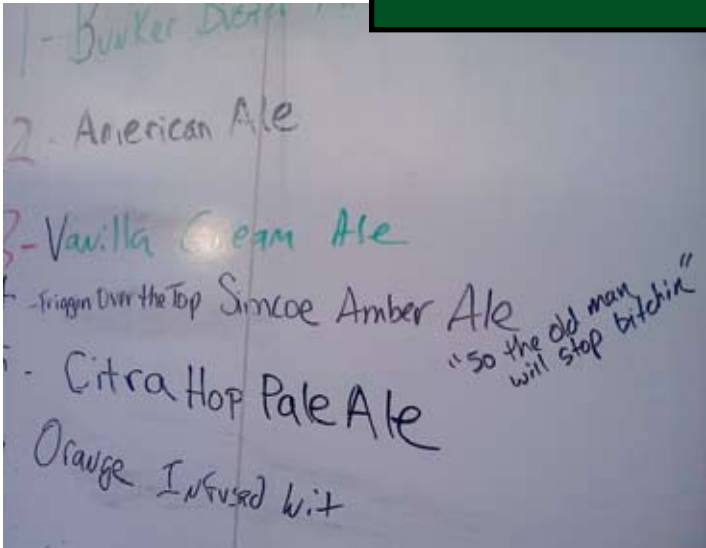 1 - Bunker
2 - American Ale
3 - Vanilla Cream Ale
- Friggin Over the Top Simcoe Amber Ale
"So the old man
will stop bitchin"
- Citra Hop Pale Ale
Orange Infused Wit